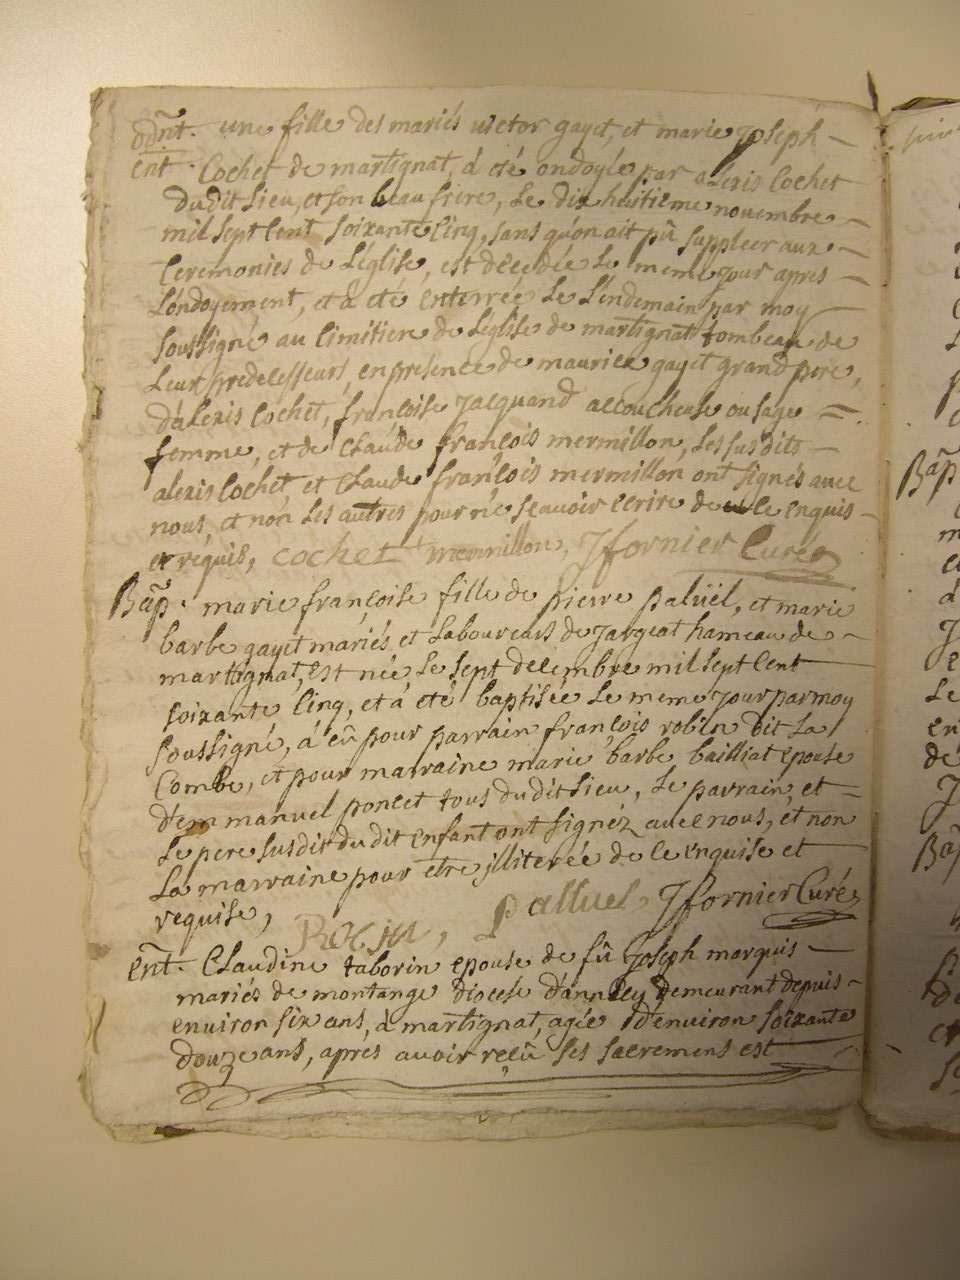 odñt. une fille des mariés victor gayet, et marie Joseph
ent. Cochet de martignat, à été ondoyée par alexis Cochet
dudit lieu, et son beau frere, le dix huitieme novembre
mil sept cent soixante cinq, sans qu'on ait pû suppleer aux
Ceremonies de L'église, est décedée le meme jour apres
L'ondoyement, et à eté enterrée le l'endemain par moy
soussigné au cimitiere de L'église de martignat tombeau de
Leurs predecesseurs, en presence de maurice gayet grand pere,
d'alexis Cochet, françoise Jacquand accoucheuse ou sage
femme, et de Claude françois mermillon, les susdits
alexis Cochet, et Claude françois mermillon ont signés avec
nous, et non les autres pour ne sçavoir ecrire de ce enquis
et requis, cochet mermillon, J fornier Curé
Bap. marie françoise fille de pierre palüel, et marie
barbe gayet mariés et Laboureurs de Jargeat hameau de
martignat, est née, le sept decembre mil sept cent
soixante cinq, et à eté baptisée le meme jour par moy
soussigné, à eû pour parrain françois robin dit la
Combe, et pour marraine marie barbe bailliat epouse
d'emmanuel poncet tous dudit lieu, le parrain, et
le pere susdit dudit enfant ont signéz avec nous, et non
la marraine pour etre jlliterée de ce enquise et
requise, palluel, J fornier Curé
ent. Claudine taborin epouse de fû Joseph marquis
mariés de montange diocese d'annecy demeurant depuis
environ six ans, à martignat, agée d'environ soixante
douze ans, apres avoir reçû ses sacremens est
Bap